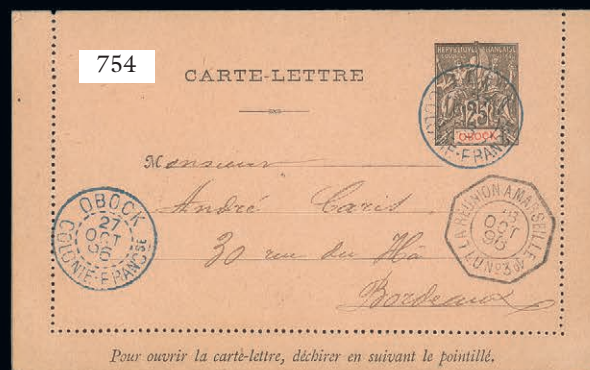 754
CARTE-LETTRE
REPUBLIQUE FRANÇAISE
25
OBOCK
COLONIE-FRANÇSE
Monsieur
André Caris
30 rue du Hâ
Bordeaux
OBOCK
27
OCT
96
COLONIE-FRANÇSE
LA REUNION A MARSEILLE
OCT
96
L.U No3
Pour ouvrir la carte-lettre, déchirer en suivant le pointillé.